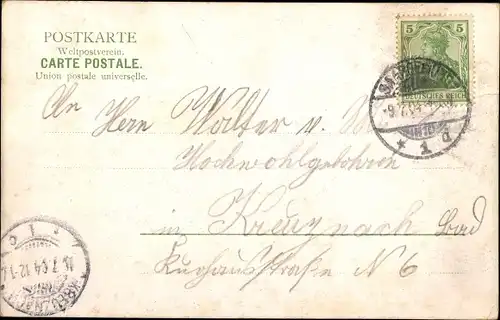 POSTKARTE
Weltpostverein.
CARTE POSTALE.
Union postale universelle.
5 5
DEUTSCHES REICH
An Herrn Walter v.
Hochwohlgeboren
in Kreuznach Bad
Kurhausstraße N 6
* 1 d